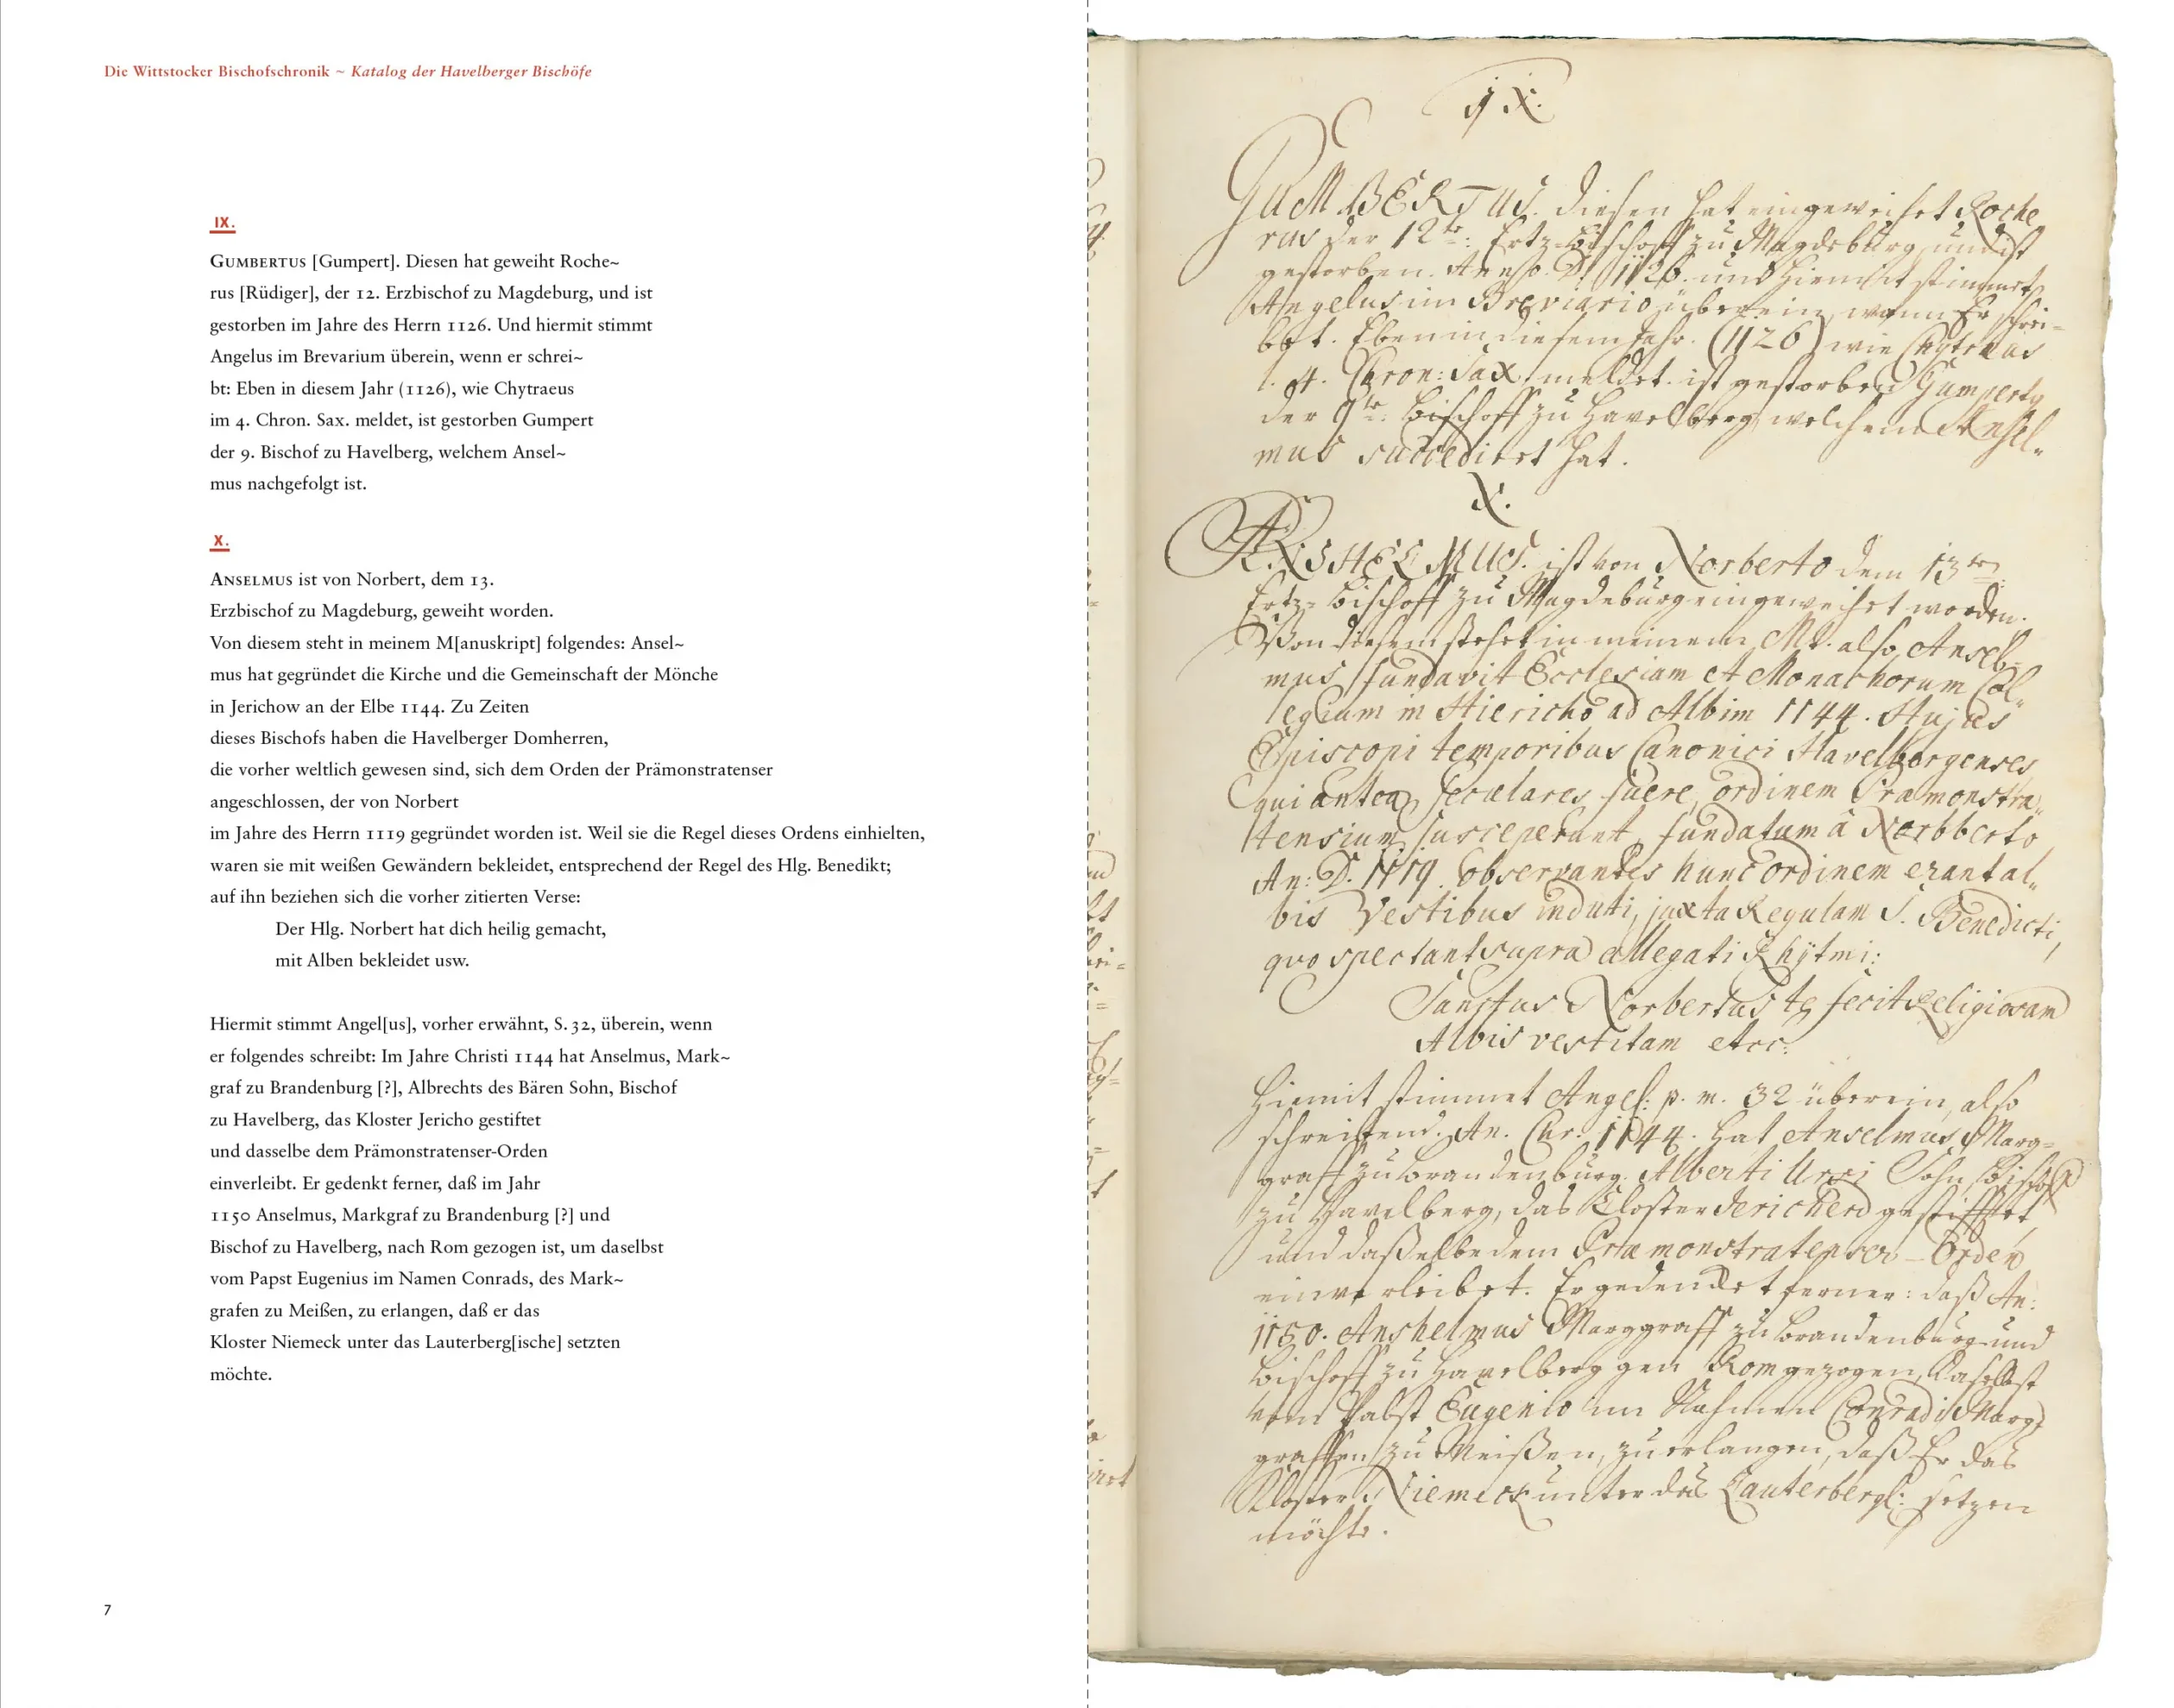 Die Wittstocker Bischofschronik ~ Katalog der Havelberger Bischöfe
IX.
GUMBERTUS [Gumpert]. Diesen hat geweiht Roche~
rus [Rüdiger], der 12. Erzbischof zu Magdeburg, und ist
gestorben im Jahre des Herrn 1126. Und hiermit stimmt
Angelus im Brevarium überein, wenn er schrei~
bt: Eben in diesem Jahr (1126), wie Chytraeus
im 4. Chron. Sax. meldet, ist gestorben Gumpert
der 9. Bischof zu Havelberg, welchem Ansel~
mus nachgefolgt ist.
X.
ANSELMUS ist von Norbert, dem 13.
Erzbischof zu Magdeburg, geweiht worden.
Von diesem steht in meinem M[anuskript] folgendes: Ansel~
mus hat gegründet die Kirche und die Gemeinschaft der Mönche
in Jerichow an der Elbe 1144. Zu Zeiten
dieses Bischofs haben die Havelberger Domherren,
die vorher weltlich gewesen sind, sich dem Orden der Prämonstratenser
angeschlossen, der von Norbert
im Jahre des Herrn 1119 gegründet worden ist. Weil sie die Regel dieses Ordens einhielten,
waren sie mit weißen Gewändern bekleidet, entsprechend der Regel des Hlg. Benedikt;
auf ihn beziehen sich die vorher zitierten Verse:
Der Hlg. Norbert hat dich heilig gemacht,
mit Alben bekleidet usw.
Hiermit stimmt Angel[us], vorher erwähnt, S. 32, überein, wenn
er folgendes schreibt: Im Jahre Christi 1144 hat Anselmus, Mark~
graf zu Brandenburg [?], Albrechts des Bären Sohn, Bischof
zu Havelberg, das Kloster Jericho gestiftet
und dasselbe dem Prämonstratenser-Orden
einverleibt. Er gedenkt ferner, daß im Jahr
1150 Anselmus, Markgraf zu Brandenburg [?] und
Bischof zu Havelberg, nach Rom gezogen ist, um daselbst
vom Papst Eugenius im Namen Conrads, des Mark~
grafen zu Meißen, zu erlangen, daß er das
Kloster Niemeck unter das Lauterberg[ische] setzten
möchte.
7
IX.
GUMBERTUS. diesen hat eingeweihet Roche
rus der 12te: Ertz-Bischoff zu Magdeburg und ist
gestorben. Anno. D. 1126. und hiemit stimmet
Angelus im Breviario überein, wann Er schrei=
bet. Eben in diesem Jahr. (1126) wie Chytræus
l. 4. Chron: Sax. meldet. ist gestorben Gumpertg
der 9te: Bischoff zu Havelberg welchem Ansel=
mus succediret hat.
X.
ANSHELMUS. ist von Norberto dem 13ten
Ertz=Bischoff zu Magdeburg eingeweihet worden.
Von diesem stehet in meinem M. also, Ansel=
mus fundavit Ecclesiam et Monachorum Col=
legium in Hiericho ad Albim 1144. Hujus
Episcopi temporibus Canonici Havelbergenses
qui antea seculares fuere, ordinem Præmonstra=
tensium susceperunt, fundatum à Norbberto
An: D. 1119. observantes hunc ordinem erant al=
bis Vestibus induti, juxta Regulam S. Benedicti,
quo spectant supra allegati Rhÿtmi:
Sanctus Norbertus te fecit Religiosam
Albis vestitam etcc:
Hiemit stimmet Angel: p. m. 32 überein, also
schreibend. An. Chr: 1144. hat Anselmus Marg=
graff zu Brandenburg. Alberti Ursi Sohn, Bischoff
zu Havelberg, das Closter Jericho gestifftet
und daßelbe dem Præmonstratenser-Orden
einverleibet. Er gedencket ferner: daß An:
1150. Anshelmus Marggraff zu Brandenburg und
Bischoff zu Havelberg gen Rom gezogen, daselbst
vom Pabst Eugenio im Nahmen Conradi Marg=
graffen zu Meißen, zu erlangen, daß Er das
Kloster Niemeck unter das Lauterbergl: setzen
möchte.